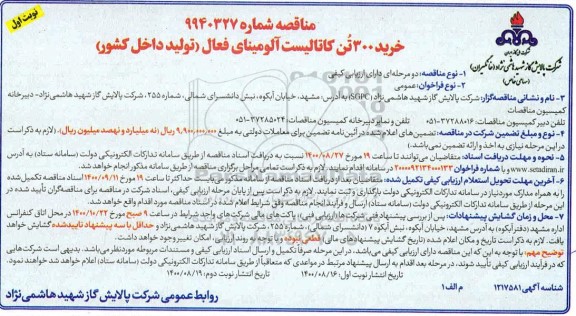 نوبت اول
مناقصه شماره ۹۹۴۰۳۲۷
خرید ۳۰۰ تُن کاتالیست آلومینای فعال (تولید داخل کشور)
شرکت پالایش گاز شهید هاشمی نژاد (خانگیران)
(سهامی خاص)
۱- نوع مناقصه: دو مرحله‌ای دارای ارزیابی کیفی
۲- نوع فراخوان: عمومی
۳- نام و نشانی مناقصه‌گزار: شرکت پالایش گاز شهید هاشمی نژاد (SGPC) به آدرس: مشهد، خیابان آبکوه، نبش دانشسرای شمالی، شماره ۲۵۵، شرکت پالایش گاز شهید هاشمی‌نژاد- دبیرخانه
کمیسیون مناقصات
تلفن دبیر کمیسیون مناقصات: ۳۷۲۸۸۰۱۶-۰۵۱ تلفن و نمابر دبیرخانه کمیسیون مناقصات: ۳۷۲۸۵۰۲۲-۰۵۱
۴- نوع و مبلغ تضمین شرکت در مناقصه: تضمین‌های اعلام شده در آئین‌نامه تضمین برای معاملات دولتی به مبلغ ۹,۹۰۰,۰۰۰,۰۰۰ ریال (نه میلیارد و نهصد میلیون ریال). (لازم به ذکر است
در این مرحله نیازی به اخذ و ارائه تضمین نمی‌باشد).
۵- نحوه و مهلت دریافت اسناد: متقاضیان می‌توانند تا ساعت ۱۹ مورخ ۱۴۰۰/۰۸/۲۷ نسبت به دریافت اسناد مناقصه از طریق سامانه تدارکات الکترونیکی دولت (سامانه ستاد) به آدرس
www.setadiran.ir و با شماره فراخوان ۲۰۰۰۰۹۲۱۳۴۰۰۰۱۳۲ در سامانه اقدام نمایند. لازم به ذکر است تمامی مراحل برگزاری مناقصه از طریق سامانه مذکور انجام خواهد شد.
۶- آخرین مهلت تحویل استعلام ارزیابی کیفی تکمیل شده: متقاضیان بعد از دریافت اسناد مناقصه از سامانه، حداکثر تا ساعت ۱۹ مورخ ۱۴۰۰/۰۹/۱۱ اسناد مناقصه تکمیل شده
را به همراه مدارک موردنیاز در سامانه تدارکات الکترونیکی دولت بارگذاری و ثبت نمایند. لازم به ذکر است پس از پایان مرحله ارزیابی کیفی، اسناد شرکت در مناقصه برای مناقصه‌گران تأیید شده در
این مرحله از طریق سامانه تدارکات الکترونیکی دولت (سامانه ستاد) ارسال و فرآیند انجام مناقصه وفق شرایط اعلام شده در اسناد مناقصه مورد اقدام واقع خواهد شد.
۷- محل و زمان گشایش پیشنهادات: پس از بررسی پیشنهاد فنی شرکت‌ها (ارزیابی فنی)، پاکت‌های مالی شرکت‌های واجد شرایط در ساعت ۹ صبح مورخ ۱۴۰۰/۱۰/۲۲ در محل اتاق کنفرانس
اداره مشهد (دفتر آبکوه) به آدرس: مشهد، خیابان آبکوه، نبش آبکوه ۷ (دانشسرای شمالی)، شماره ۲۵۵، شرکت پالایش گاز شهید هاشمی نژاد و حداقل با سه پیشنهاد تاییدشده گشایش خواهد
یافت. لازم به ذکر است تاریخ و مکان اعلام شده (تاریخ گشایش پیشنهادهای مالی) قطعی نبوده و با توجه به روند ارزیابی، امکان تغییر وجود خواهد داشت.
توضیح مهم: با توجه به این که این مناقصه دارای ارزیابی کیفی می‌باشد، در این مرحله صرفاً تکمیل و ارسال اسناد ارزیابی کیفی و مستندات مربوطه مورد‌نظر می‌باشد. بدیهی است شرکت‌هایی
که در فرآیند ارزیابی کیفی تأیید شوند، در مرحله بعد اقدام به ارسال پیشنهاد مرتبط در مواعدی که متعاقباً از طریق سامانه تدارکات الکترونیکی دولت (سامانه ستاد) اعلام خواهد شد خواهند نمود.
تاریخ انتشار نوبت اول: ۱۴۰۰/۰۸/۱۶ تاریخ انتشار نوبت دوم: ۱۴۰۰/۰۸/۱۹
شناسه آگهی ۱۲۱۷۵۸۱ م الف ۱
روابط عمومی شرکت پالایش گاز شهید هاشمی نژاد